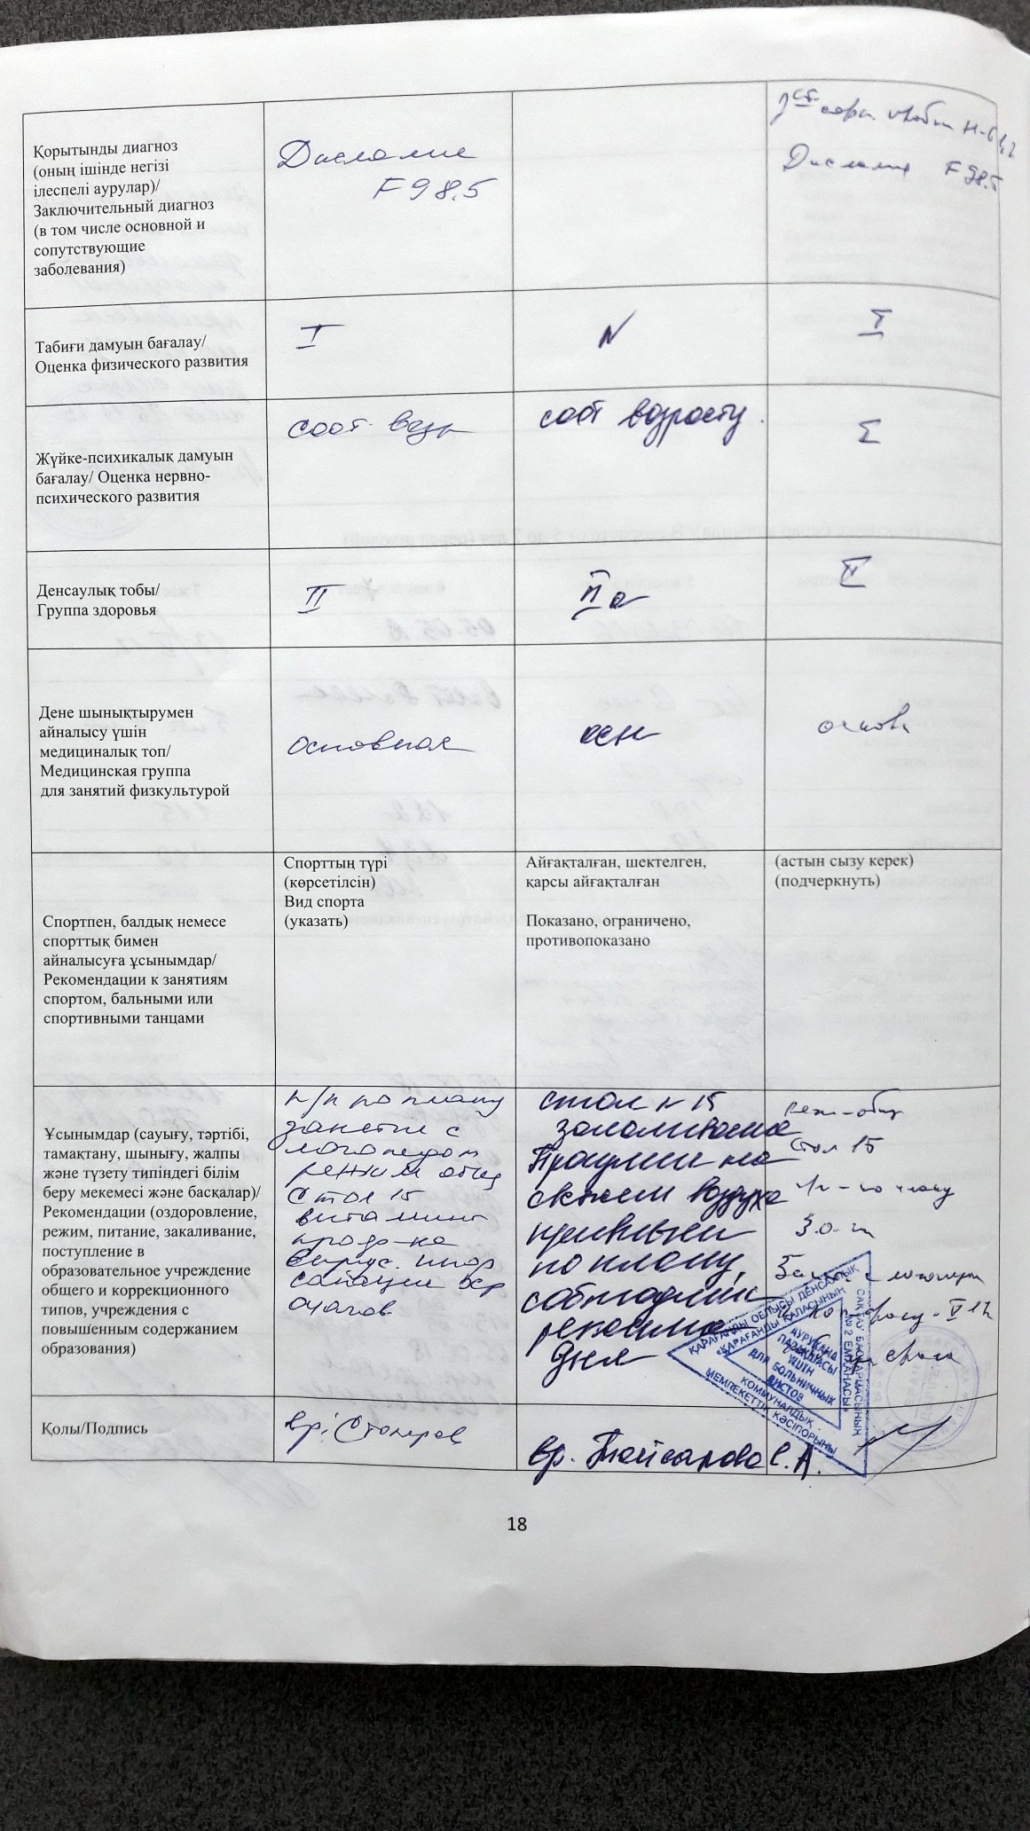 Қорытынды диагноз
(оның ішінде негізі
ілеспелі аурулар)/
Заключительный диагноз
(в том числе основной и
сопутствующие
заболевания)
Дислалие
F98.5
Дислалия F98.5
Табиғи дамуын бағалау/
Оценка физического развития
I
N
I
Жүйке-психикалық дамуын
бағалау/ Оценка нервно-
психического развития
соот. возр
соот возрасту.
I
Денсаулық тобы/
Группа здоровья
II
II а
II
Дене шынықтырумен
айналысу үшін
медициналық топ/
Медицинская группа
для занятий физкультурой
основная
осн
основн
Спортпен, балдық немесе
спорттық бимен
айналысуға ұсынымдар/
Рекомендации к занятиям
спортом, бальными или
спортивными танцами
Спорттың түрі
(көрсетілсін)
Вид спорта
(указать)
Айғақталған, шектелген,
қарсы айғақталған
Показано, ограничено,
противопоказано
(астын сызу керек)
(подчеркнуть)
Ұсынымдар (сауығу, тәртібі,
тамақтану, шынығу, жалпы
және түзету типіндегі білім
беру мекемесі және басқалар)/
Рекомендации (оздоровление,
режим, питание, закаливание,
поступление в
образовательное учреждение
общего и коррекционного
типов, учреждения с
повышенным содержанием
образования)
п/п по плану
занятие с
логопедом
режим общ
Стол 15
витамины
проф-ка
вирус. инф
санация хр
очагов
стол N 15
закаливание
Прогулки на
свежем воздухе
прививки
по плану,
соблюдение
режима
дня
реж-общ
Стол 15
по плану
с логопедом
ҚАРАҒАНДЫ ОБЛЫСЫ ДЕНСАУЛЫҚ
САҚТАУ БАСҚАРМАСЫНЫҢ
«ҚАРАҒАНДЫ ҚАЛАСЫНЫҢ
№ 2 ЕМХАНАСЫ»
КОММУНАЛДЫҚ
МЕМЛЕКЕТТІК КӘСІПОРЫНЫ
ДЛЯ БОЛЬНИЧНЫХ
ЛИСТОВ
Қолы/Подпись
вр.
вр. С.А.
18